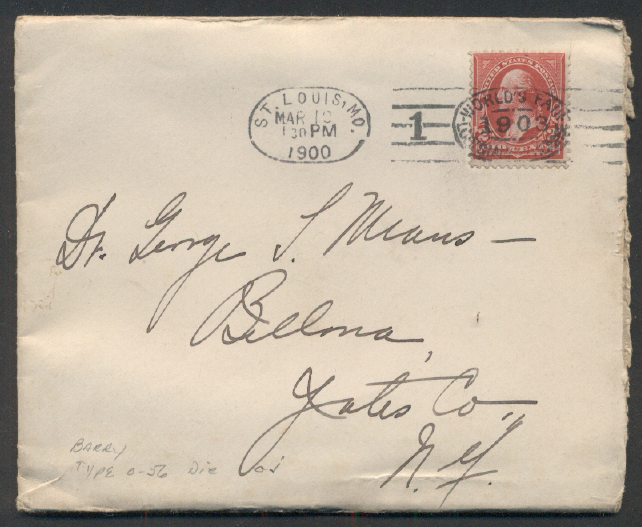 ST. LOUIS, MO.
MAR 12
130 PM
1900
1
WORLD'S FAIR
1903
UNITED STATES POSTAGE
Dr. George S. Means —
Bellona,
Yates Co.,
N.Y.
BARRY
TYPE O-56 Die